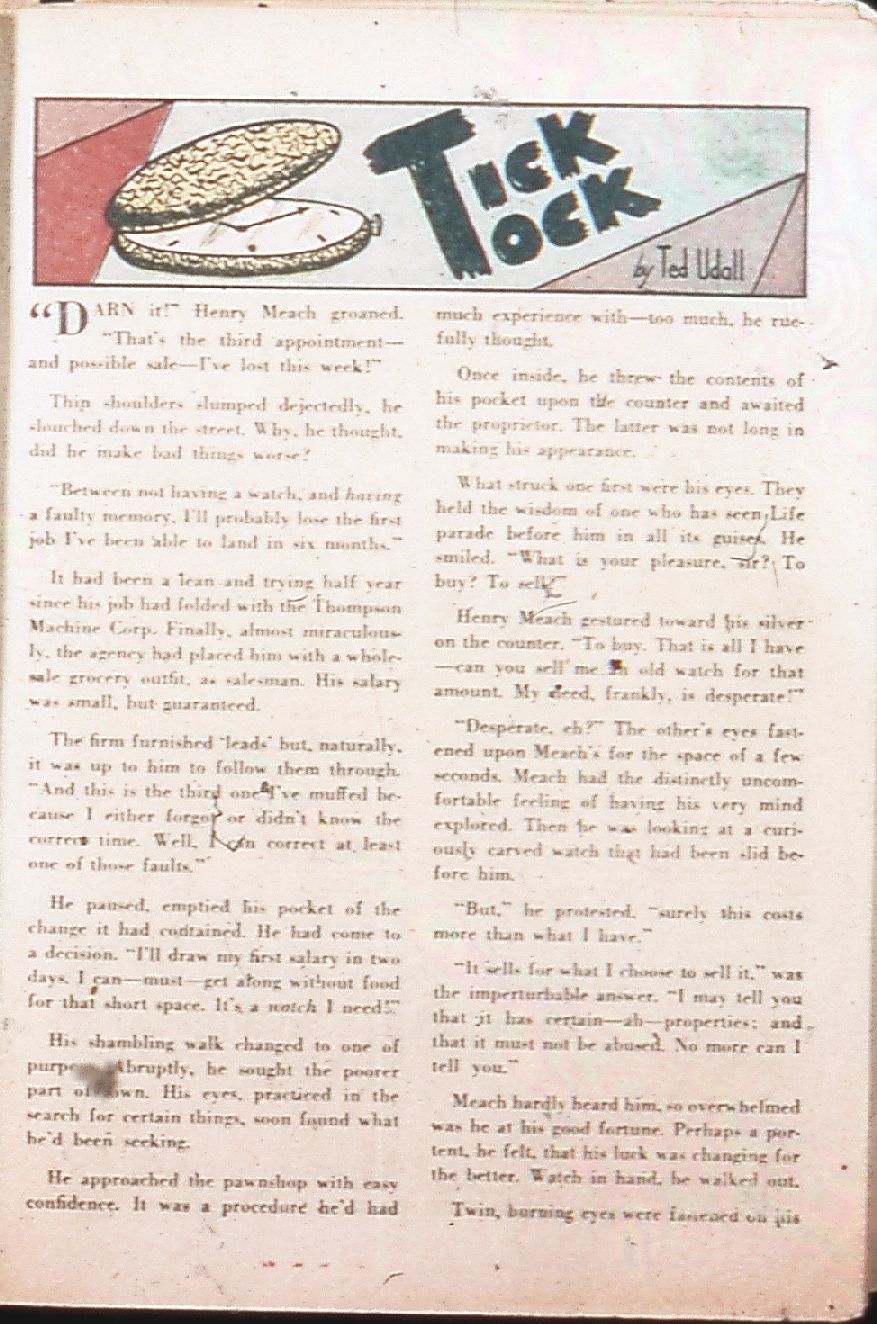 TICK
TOCK
by Ted Udall
"DARN it!" Henry Meach groaned.
"That's the third appointment—
and possible sale—I've lost this week!"
Thin shoulders slumped dejectedly, he
slouched down the street. Why, he thought,
did he make bad things worse?
"Between not having a watch, and having
a faulty memory, I'll probably lose the first
job I've been able to land in six months."
It had been a lean and trying half year
since his job had folded with the Thompson
Machine Corp. Finally, almost miraculous-
ly, the agency had placed him with a whole-
sale grocery outfit, as salesman. His salary
was small, but guaranteed.
The firm furnished 'leads' but, naturally,
it was up to him to follow them through.
"And this is the third one I've muffed be-
cause I either forgot or didn't know the
correct time. Well, I can correct at least
one of those faults."
He paused, emptied his pocket of the
change it had contained. He had come to
a decision. "I'll draw my first salary in two
days. I can—must—get along without food
for that short space. It's a watch I need!"
His shambling walk changed to one of
purpose. Abruptly, he sought the poorer
part of town. His eyes, practiced in the
search for certain things, soon found what
he'd been seeking.
He approached the pawnshop with easy
confidence. It was a procedure he'd had
much experience with—too much, he rue-
fully thought.
Once inside, he threw the contents of
his pocket upon the counter and awaited
the proprietor. The latter was not long in
making his appearance.
What struck one first were his eyes. They
held the wisdom of one who has seen Life
parade before him in all its guises. He
smiled. "What is your pleasure, sir? To
buy? To sell?"
Henry Meach gestured toward his silver
on the counter. "To buy. That is all I have
—can you sell me an old watch for that
amount. My need, frankly, is desperate!"
"Desperate, eh?" The other's eyes fast-
ened upon Meach's for the space of a few
seconds. Meach had the distinctly uncom-
fortable feeling of having his very mind
explored. Then he was looking at a curi-
ously carved watch that had been slid be-
fore him.
"But," he protested, "surely this costs
more than what I have."
"It sells for what I choose to sell it," was
the imperturbable answer. "I may tell you
that it has certain—ah—properties; and
that it must not be abused. No more can I
tell you."
Meach hardly heard him, so overwhelmed
was he at his good fortune. Perhaps a por-
tent, he felt, that his luck was changing for
the better. Watch in hand, he walked out.
Twin, burning eyes were fastened on his